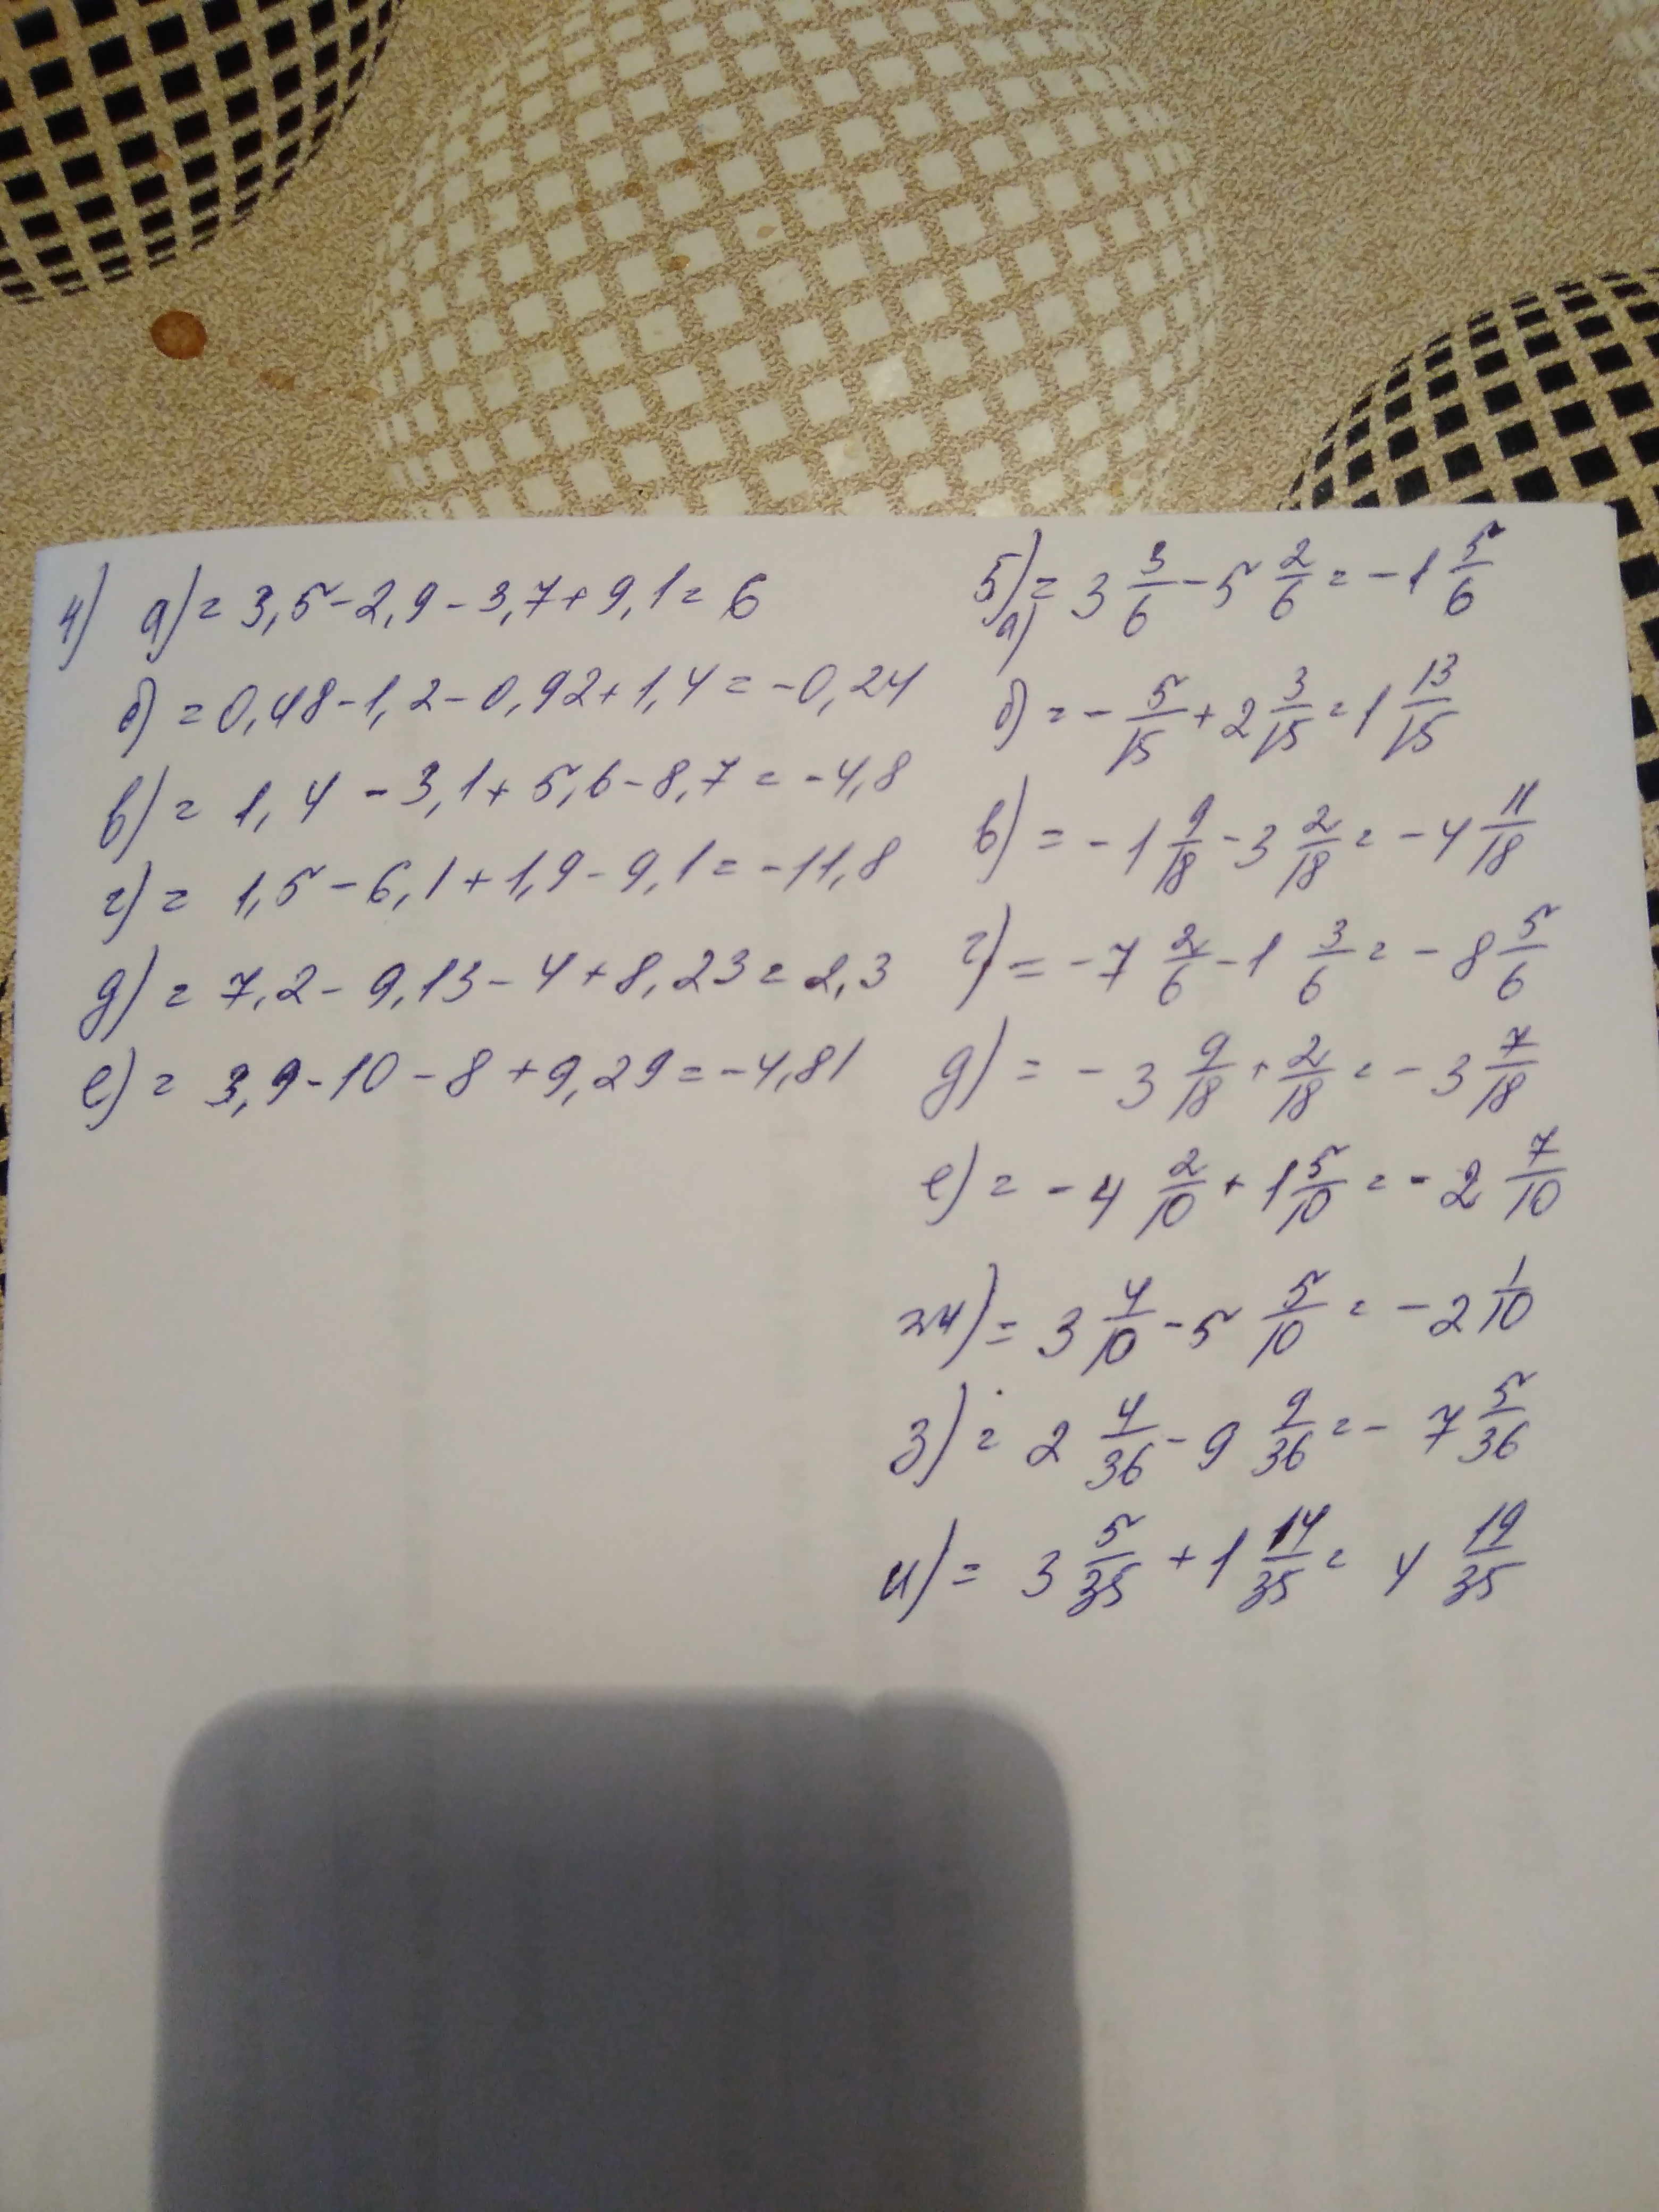 4) а) = 3,5 - 2,9 - 3,7 + 9,1 = 6
б) = 0,48 - 1,2 - 0,92 + 1,4 = -0,24
в) = 1,4 - 3,1 + 5,6 - 8,7 = -4,8
г) = 1,5 - 6,1 + 1,9 - 9,1 = -11,8
д) = 7,2 - 9,13 - 4 + 8,23 = 2,3
е) = 3,9 - 10 - 8 + 9,29 = -4,81
5) а) = 3 3/6 - 5 2/6 = -1 5/6
б) = - 5/15 + 2 3/15 = 1 13/15
в) = -1 9/18 - 3 2/18 = -4 11/18
г) = -7 2/6 - 1 3/6 = -8 5/6
д) = -3 9/18 + 2/18 = -3 7/18
е) = -4 2/10 + 1 5/10 = -2 7/10
ж) = 3 4/10 - 5 5/10 = -2 1/10
з) = 2 4/36 - 9 9/36 = -7 5/36
и) = 3 5/35 + 1 14/35 = 4 19/35